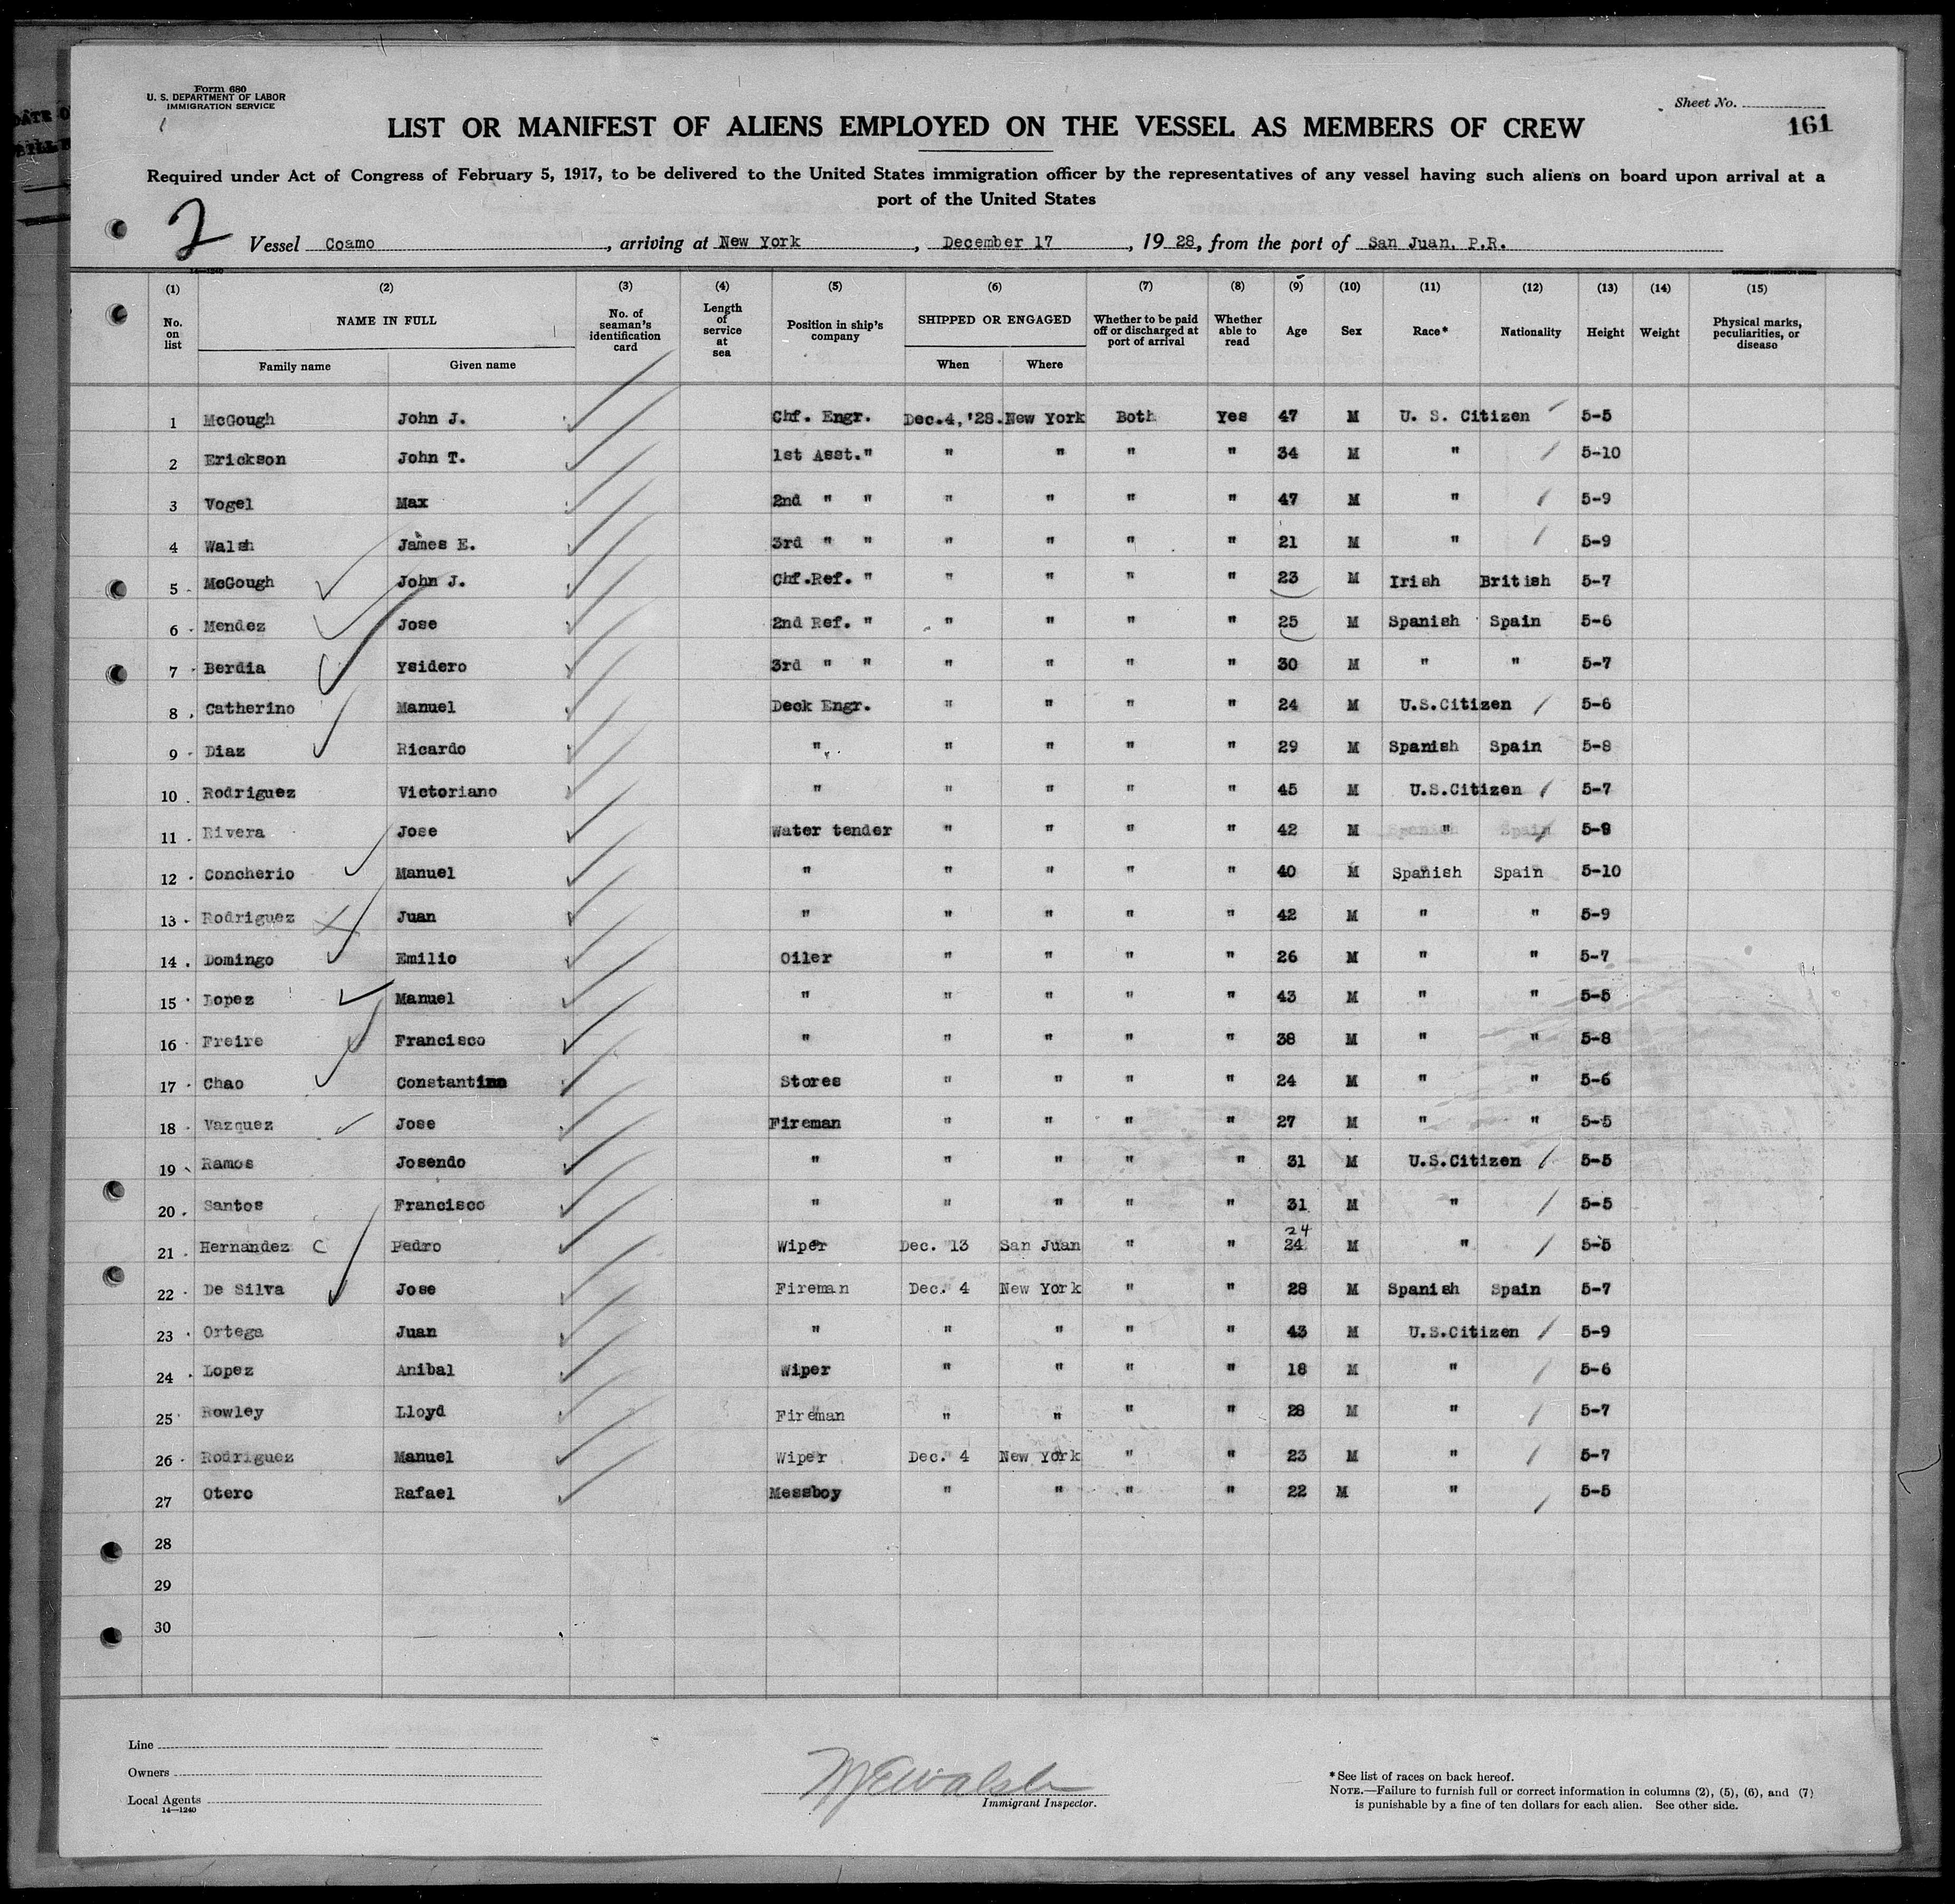 Form 680
U. S. DEPARTMENT OF LABOR
IMMIGRATION SERVICE
Sheet No.
161
LIST OR MANIFEST OF ALIENS EMPLOYED ON THE VESSEL AS MEMBERS OF CREW
Required under Act of Congress of February 5, 1917, to be delivered to the United States immigration officer by the representatives of any vessel having such aliens on board upon arrival at a
port of the United States
2 Vessel Coamo, arriving at New York, December 17, 1928, from the port of San Juan, P.R.
14—1240
(1) (2) (3) (4) (5) (6) (7) (8) (9) (10) (11) (12) (13) (14) (15)
No. on list NAME IN FULL Family name Given name No. of seaman's identification card Length of service at sea Position in ship's company SHIPPED OR ENGAGED When Where Whether to be paid off or discharged at port of arrival Whether able to read Age Sex Race* Nationality Height Weight Physical marks, peculiarities, or disease
1 McGough John J. Chf. Engr. Dec.4,'28. New York Both Yes 47 M U. S. Citizen 5-5
2 Erickson John T. 1st Asst." " " " " 34 M " 5-10
3 Vogel Max 2nd " " " " " " 47 M " 5-9
4 Walsh James E. 3rd " " " " " " 21 M " 5-9
5 McGough John J. Chf.Ref. " " " " " 23 M Irish British 5-7
6 Mendez Jose 2nd Ref. " " " " " 25 M Spanish Spain 5-6
7 Berdia Ysidero 3rd " " " " " " 30 M " " 5-7
8 Catherino Manuel Deck Engr. " " " " 24 M U.S.Citizen 5-6
9 Diaz Ricardo " " " " " 29 M Spanish Spain 5-8
10 Rodriguez Victoriano " " " " " 45 M U.S.Citizen 5-7
11 Rivera Jose Water tender " " " " 42 M " 5-9
12 Concherio Manuel " " " " " 40 M Spanish Spain 5-10
13 Rodriguez Juan " " " " " 42 M " " 5-9
14 Domingo Emilio Oiler " " " " 26 M " " 5-7
15 Lopez Manuel " " " " " 43 M " " 5-5
16 Freire Francisco " " " " " 38 M " " 5-8
17 Chao Constantino Stores " " " " 24 M " " 5-6
18 Vazquez Jose Fireman " " " " 27 M " " 5-5
19 Ramos Josendo " " " " " 31 M U.S.Citizen 5-5
20 Santos Francisco " " " " " 31 M " 5-5
24
21 Hernandez C Pedro Wiper Dec. 13 San Juan " " 24 M " 5-5
22 De Silva Jose Fireman Dec. 4 New York " " 28 M Spanish Spain 5-7
23 Ortega Juan " " " " " 43 M U.S.Citizen 5-9
24 Lopez Anibal Wiper " " " " 18 M " 5-6
25 Rowley Lloyd Fireman " " " " 28 M " 5-7
26 Rodriguez Manuel Wiper Dec. 4 New York " " 23 M " 5-7
27 Otero Rafael Messboy " " " " 22 M " 5-5
28
29
30
Line
Owners
Local Agents
14—1240
Walsh
Immigrant Inspector.
*See list of races on back hereof.
NOTE.—Failure to furnish full or correct information in columns (2), (5), (6), and (7)
is punishable by a fine of ten dollars for each alien. See other side.